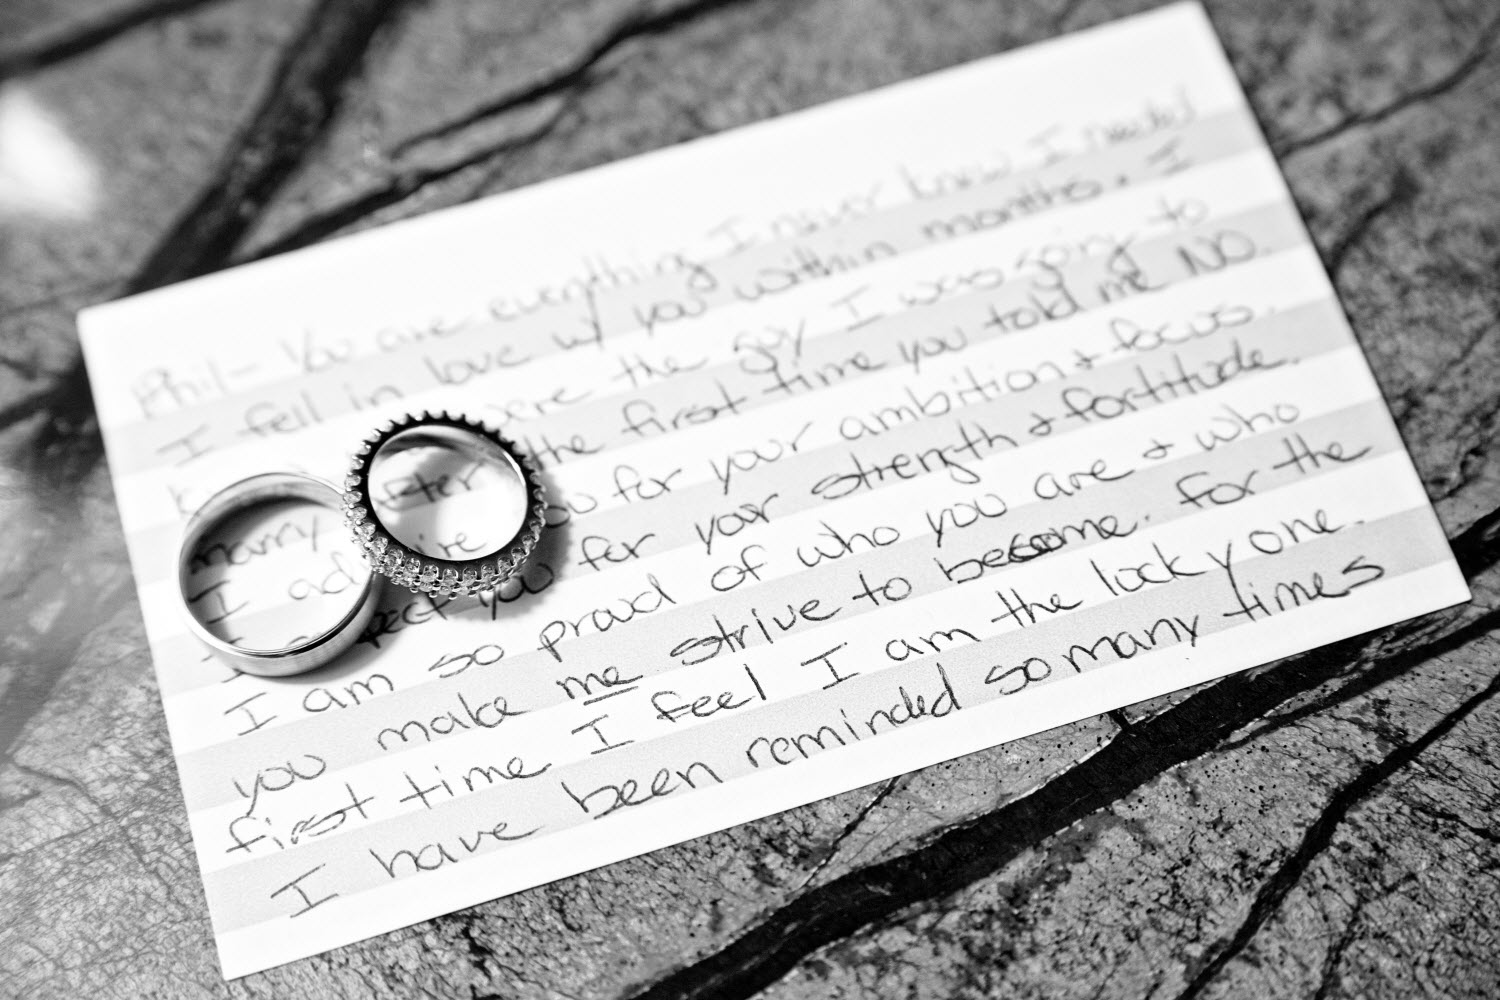 Phil- You are everything I never knew I needed
I fell in love w/ you within months. I
k were the guy I was going to
marry after the first time you told me NO.
I admire you for your ambition & focus.
I respect you for your strength & fortitude.
I am so proud of who you are & who
you make me strive to become. For the
first time I feel I am the lucky one.
I have been reminded so many times